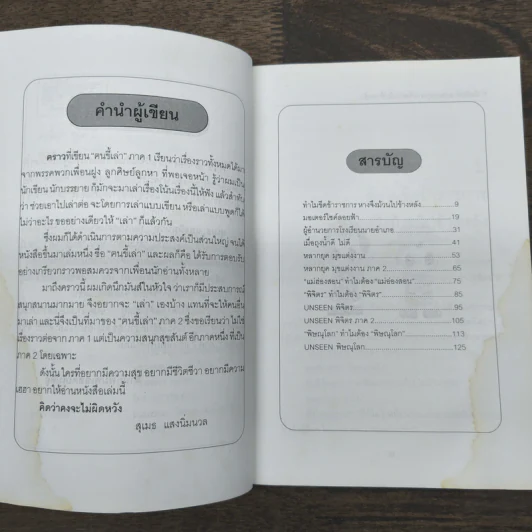 คำนำผู้เขียน
คราวที่เขียน "คนขี้เล่า" ภาค 1 เรียนว่าเรื่องราวทั้งหมดได้มา
จากพรรคพวกเพื่อนฝูง ลูกศิษย์ลูกหา ที่พอเจอหน้า รู้ว่าผมเป็น
นักเขียน นักบรรยาย ก็มักจะมาเล่าเรื่องโน้นเรื่องนี้ให้ฟัง แล้วสำทับ
ว่า ช่วยเอาไปเล่าต่อ จะโดยการเล่าแบบเขียน หรือเล่าแบบพูดก็ได้
ไม่ว่าอะไร ขออย่างเดียวให้ "เล่า" ก็แล้วกัน
ซึ่งผมก็ได้ดำเนินการตามความประสงค์เป็นส่วนใหญ่ จนได้
หนังสือขึ้นมาเล่มหนึ่ง ชื่อ "คนขี้เล่า" และผลก็คือ ได้รับการตอบรับ
อย่างเกรียวกราวพอสมควรจากเพื่อนนักอ่านทั้งหลาย
มาถึงคราวนี้ ผมเกิดนึกมันส์ในหัวใจ ว่าเราก็มีประสบการณ์
สนุกสนานมากมาย จึงอยากจะ "เล่า" เองบ้าง แทนที่จะให้คนอื่น
มาเล่า และนี่จึงเป็นที่มาของ "คนขี้เล่า" ภาค 2 ซึ่งขอเรียนว่า ไม่ใช่
เรื่องราวต่อจาก ภาค 1 แต่เป็นความสนุกสุขสันต์ อีกภาคหนึ่ง ที่เป็น
ภาค 2 โดยเฉพาะ
ดังนั้น ใครที่อยากมีความสุข อยากมีชีวิตชีวา อยากมีความ
เฮฮา อยากให้อ่านหนังสือเล่มนี้
คิดว่าคงจะไม่ผิดหวัง
สุเมธ แสงนิ่มนวล
สารบัญ
ทำไมขีดข้าราชการทางจึงม้วนไปข้างหลัง 9
มอเตอร์ไซค์ลอยฟ้า 19
ผู้อำนวยการโรงเรียนนายอำเภอ 31
เมื่อถุงน้ำดี ไม่ดี 41
หลากยุค มุขแต่งงาน 53
หลากยุค มุขแต่งงาน ภาค 2 65
"แม่ฮ่องสอน" ทำไมต้อง "แม่ฮ่องสอน" 75
"พิจิตร" ทำไมต้อง "พิจิตร" 85
UNSEEN พิจิตร 95
UNSEEN พิจิตร ภาค 2 105
"พิษณุโลก" ทำไมต้อง "พิษณุโลก" 113
UNSEEN พิษณุโลก 125